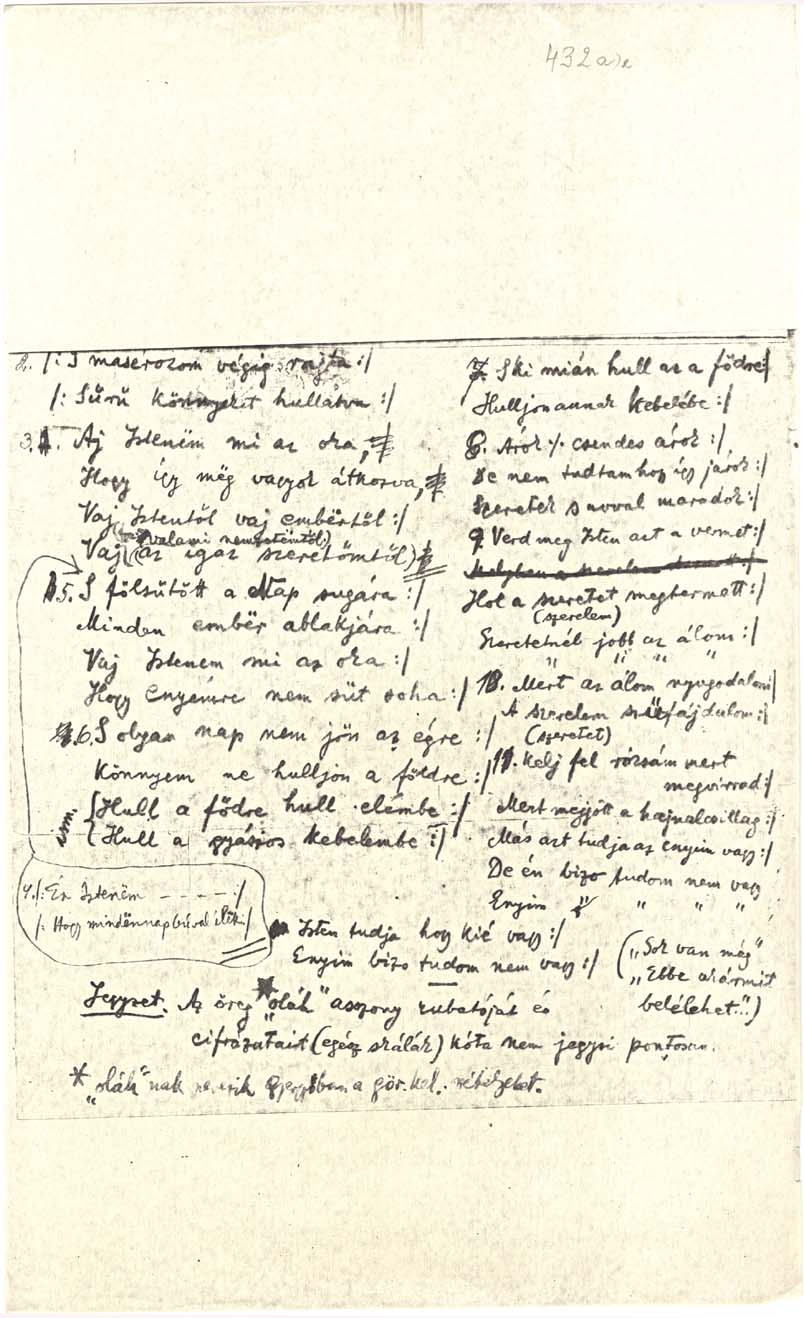 432a)e
2. /: S masérozom végig rajta :/
/: Sűrű könnyeket hullatva :/
3. Aj Istenëm mi az oka,
Hogy így mëg vagyok átkozva,
Vaj Istentől vaj embërtől :/
(valami nemzetëmtől)
Vaj (az igaz szeretőmtől)
5. S fölsütött a Nap sugára :/
Mindën embër ablakjára :/
Vaj Istenem mi az oka :/
Hogy enyémre nem süt soha :/
6. S olyan nap nem jön az égre :/
Könnyem ne hulljon a földre :/
ism. { Hull a födre hull elémbe :/
{ Hull a gyászos kebelembe :/
4. /: Én Istenëm - - - - :/
/: Hogy mindënnap búval élëk :/
7. S ki mián hull az a födre :/
Hulljon annak kebelébe :/
8. Árok ·/. csendes árok :/
De nem tudtam hogy így járok :/
Szeretek s avval maradok :/
9. Verd meg Isten azt a vermet :/
Hol a szeretet megtermett :/
(szerelem)
Szeretetnél jobb az álom :/
" " " "
10. Mert az álom nyugodalom :/
A szerelem szűfájdulom :/
(szeretet)
11. Kelj fel rózsám mert
megvirrad :/
Mert megjött a hajnalcsillag :/
Más azt tudja az enyim vagy :/
De én bizo tudom nem vagy
Enyim " " " "
Isten tudja hogy kié vagy :/
Enyim bizo tudom nem vagy :/
("Sok van még"
"Ebbe akármit
belélehet.")
Jegyzet. Az öreg * "oláh" asszony rubatóját és
cifrázatait (egész skálák) kóta nem jegyzi pontosan.
* "oláh"nak nevezik Gyergyóban a gör. kel. vidékeket.